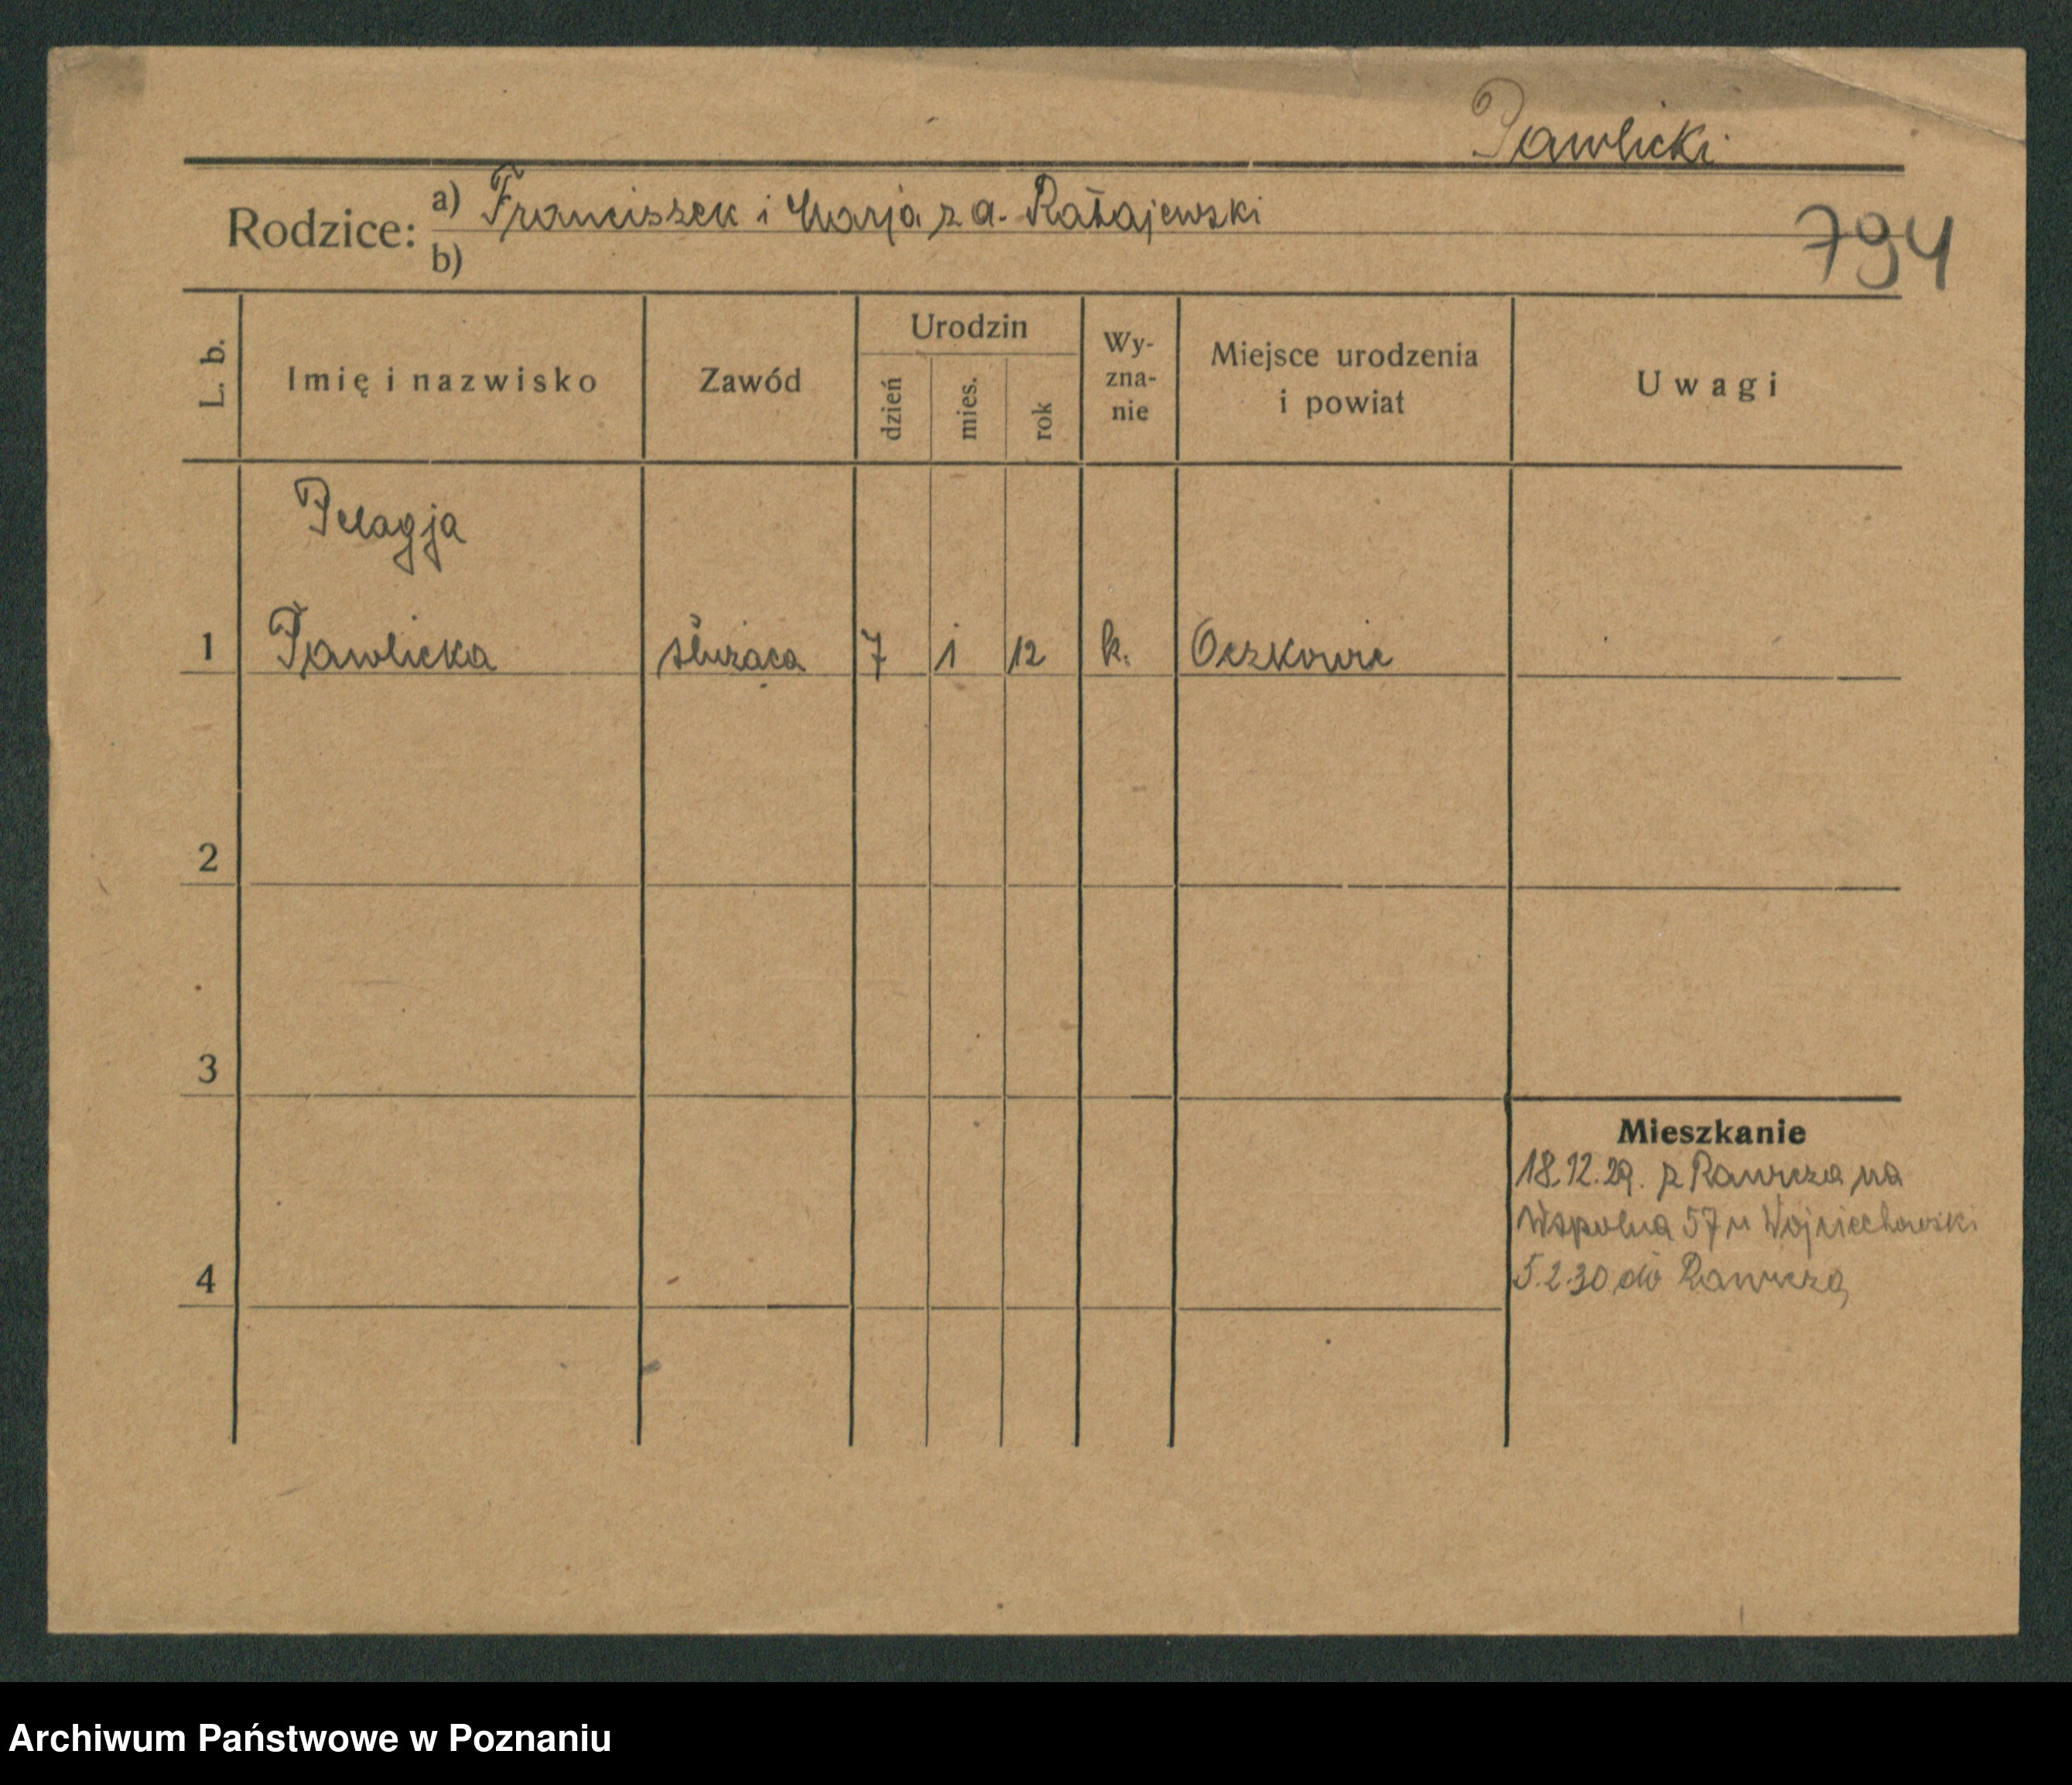 Pawlicki
Rodzice: a) Franciszek i Marja z d. Ratajewski
794
b)
L. b.
Imię i nazwisko
Zawód
Urodzin
dzień
mies.
rok
Wy-
zna-
nie
Miejsce urodzenia
i powiat
Uwagi
Pelagja
1 Pawlicka służąca 7 1 12 k. Oczkowice
2
3
Mieszkanie
18.12.29. z Rawicza na
Wspolna 57 u Wojciechowski
5.2.30 do Rawicza
4
Archiwum Państwowe w Poznaniu